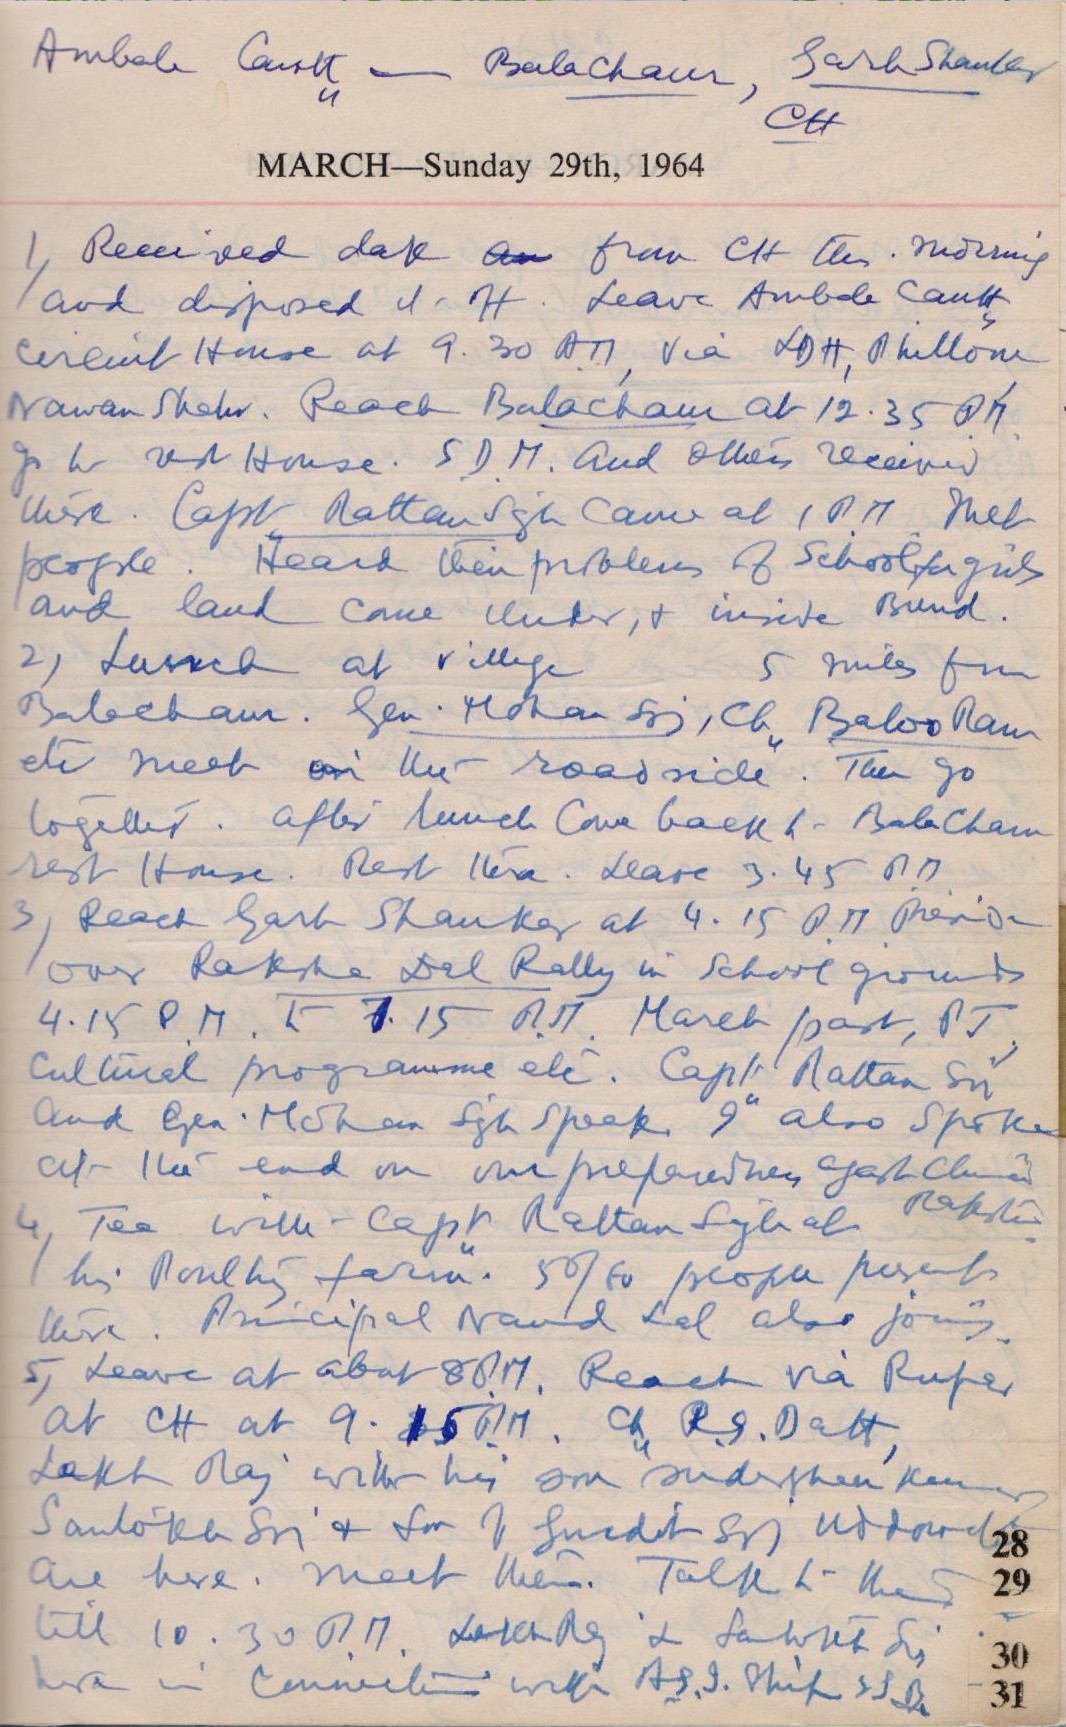 Ambala Cantt — Balachaur, Garh Shanker
CH
MARCH—Sunday 29th, 1964
1, Received dak from CH this morning
and disposed it off. Leave Ambala Cantt
circuit House at 9.30 AM, via LDH, Phillour
Nawan Shehr. Reach Balachaur at 12.35 PM.
go to rest House. S D M. and others received
there. Capt Rattan Sgh came at 1 PM Met
people. Heard their problems of School for girls
and land come under, & inside Bund.
2, Lunch at village 5 miles from
Balachaur. Gen. Mohan Sgj, Ch Baloo Ram
etc meet on the roadside. Then go
together. after lunch come back to Balachaur
rest House. Rest there. Leave 3.45 PM
3, Reach Garh Shanker at 4.15 PM Preside
over Raksha Dal Rally in School grounds
4.15 P.M. to 7.15 P.M. March past, PT,
cultural programme etc. Capt Rattan Sgj
and Gen. Mohan Sgh speak. I also spoke
at the end on our preparedness agast
4, Tea with Capt Rattan Sgh at
his Poultry farm. 50/60 people present
there. Principal Nand Lal also joins.
5, Leave at about 8 PM. Reach via Ruper
at CH at 9.15 PM. Ch R.S. Datt,
Lekh Raj with his son Sudershan Kumar
Santokh Sgj & Son of Gurdit Sgj
28
are here. Meet them. Talk to them
29
till 10.30 PM. Lekh Raj & Santokh Sgj
30
here in connection with A.S.I.
31